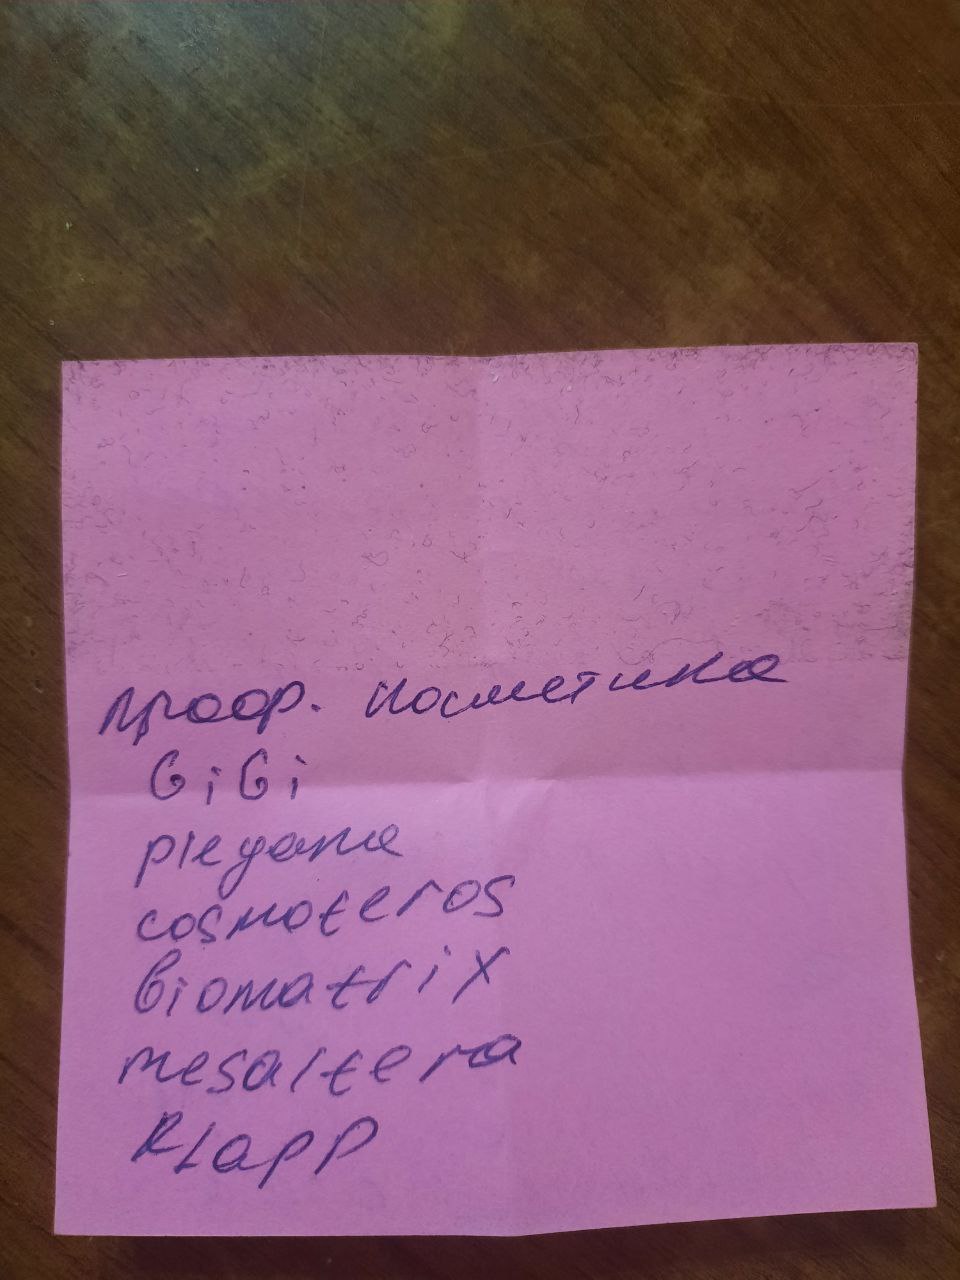 проф. косметика
GiGi
pleyana
cosmoteros
biomatrix
mesaltera
KLapp